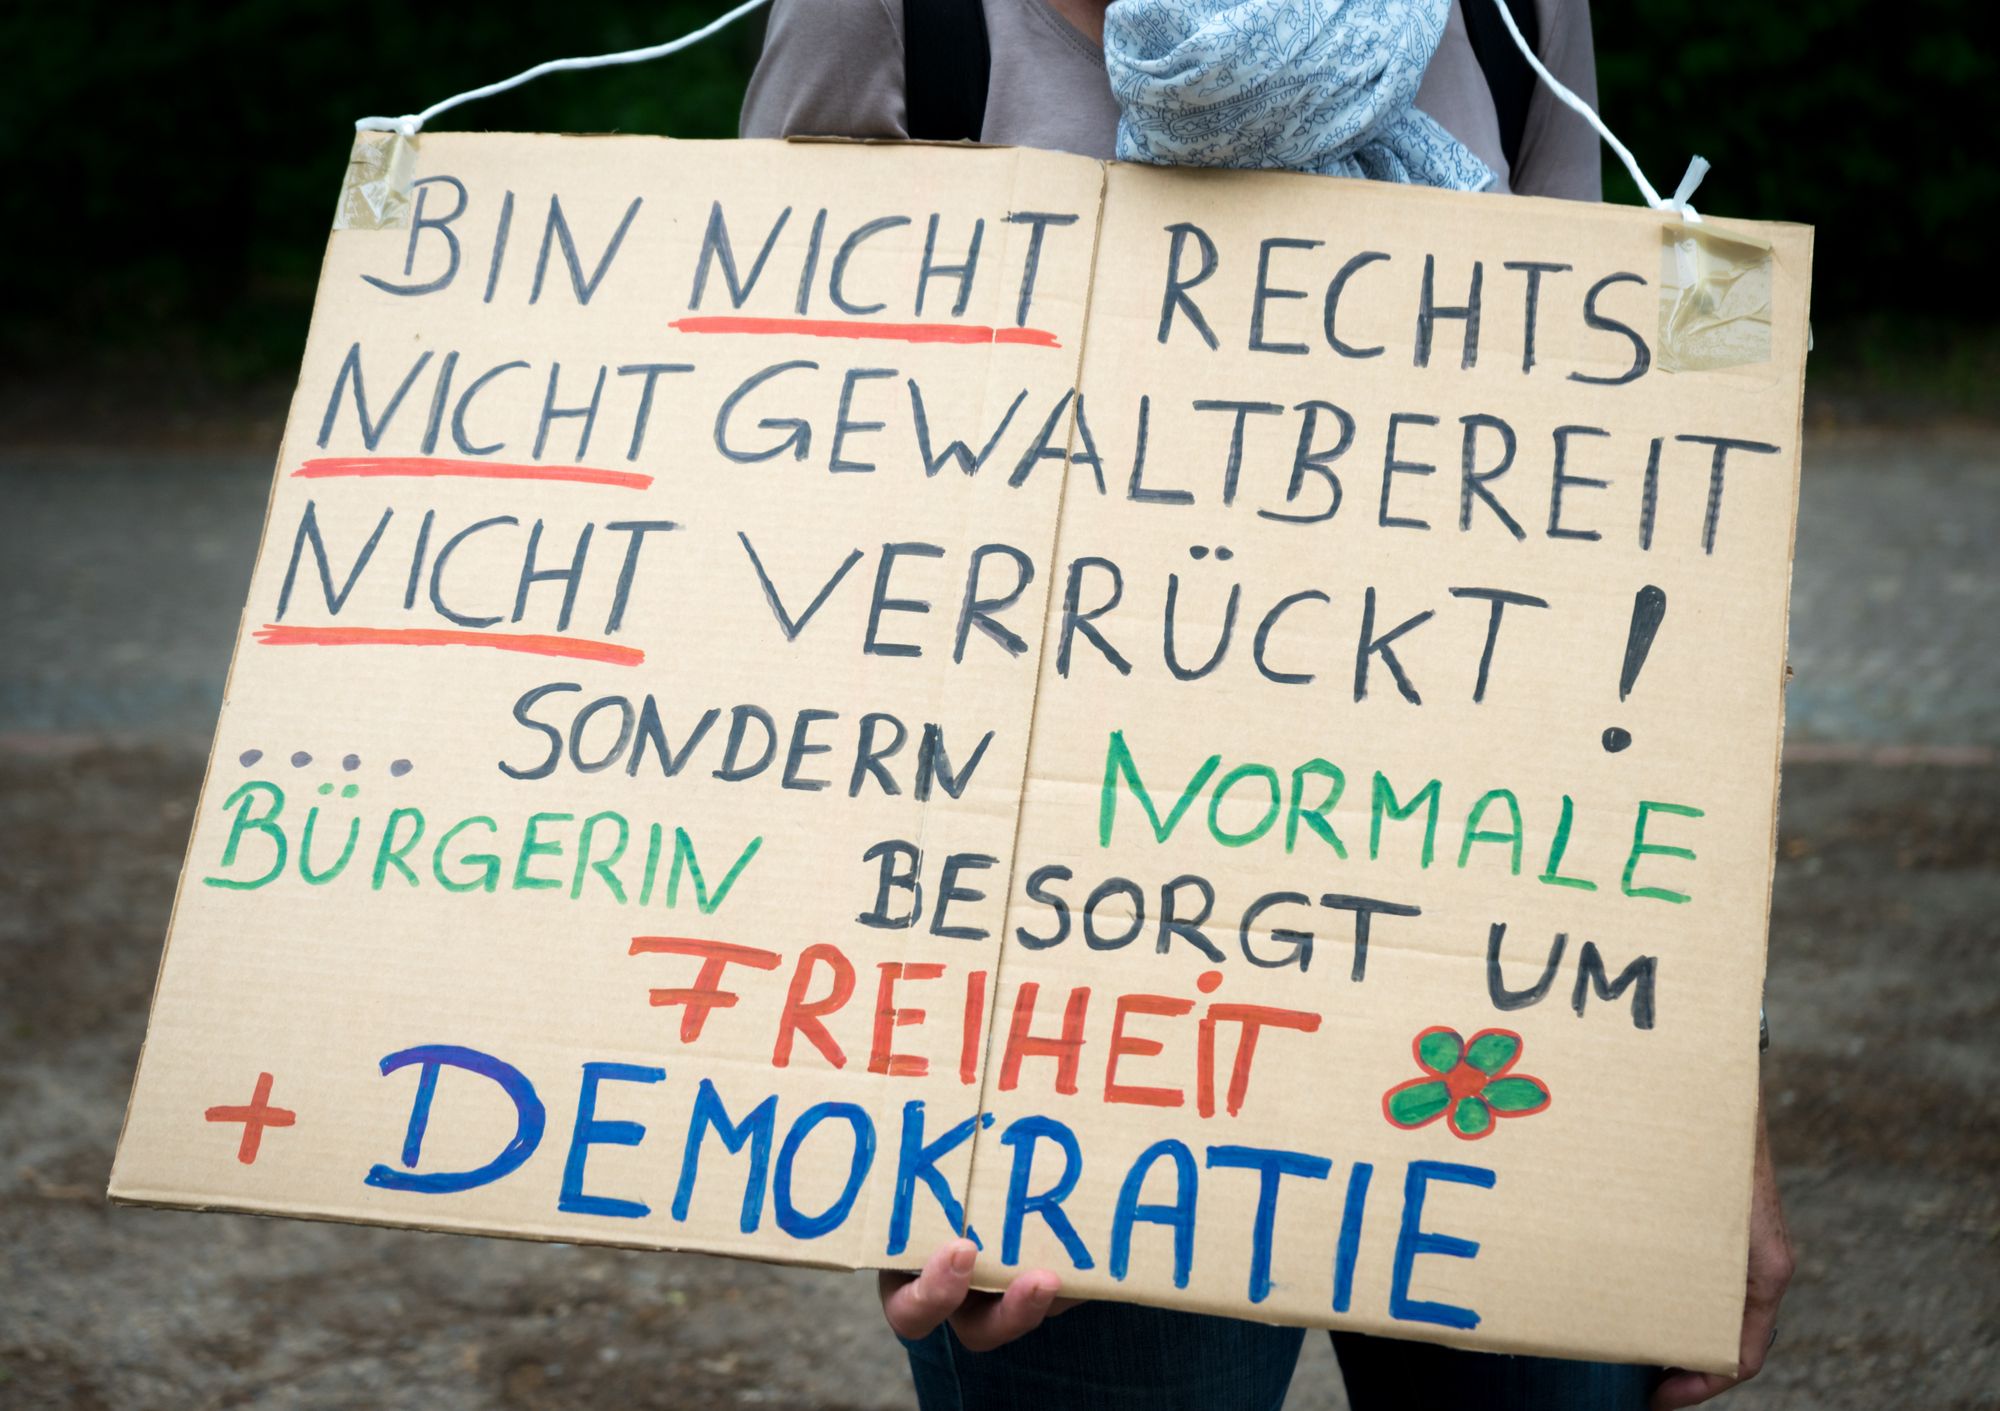 BIN NICHT RECHTS
NICHT GEWALTBEREIT
NICHT VERRÜCKT!
.... SONDERN NORMALE
BÜRGERIN BESORGT UM
FREIHEiT
+ DEMOKRATIE